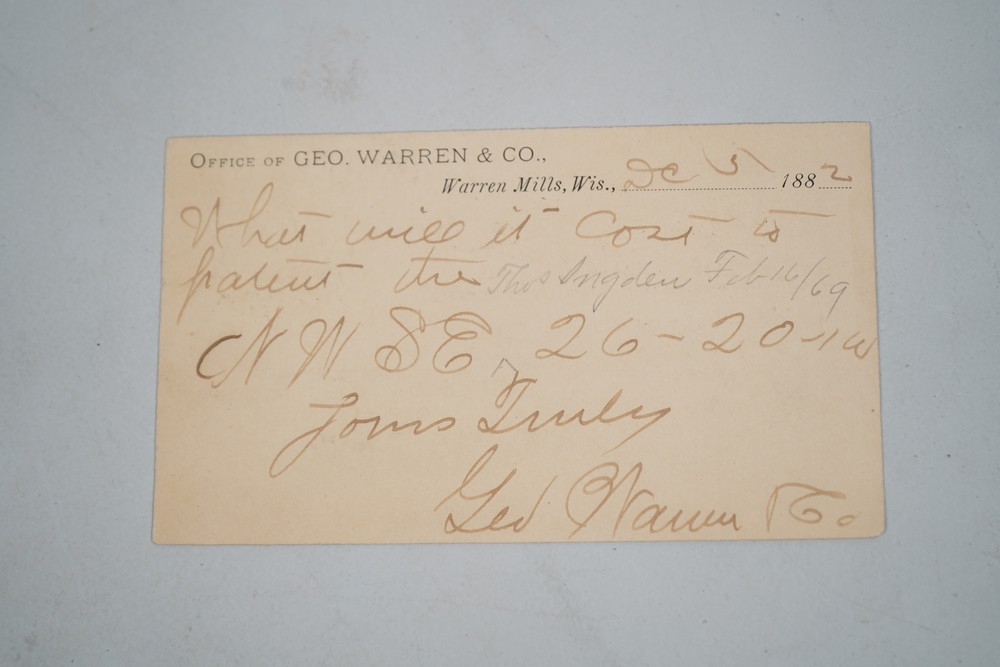 OFFICE OF GEO. WARREN & CO.,
Warren Mills, Wis., Dc 5 1882
What will it cost to
patent the Thos Feb 16/69
NW SE 26-20-1W
Yours Truly
Geo Warren & Co